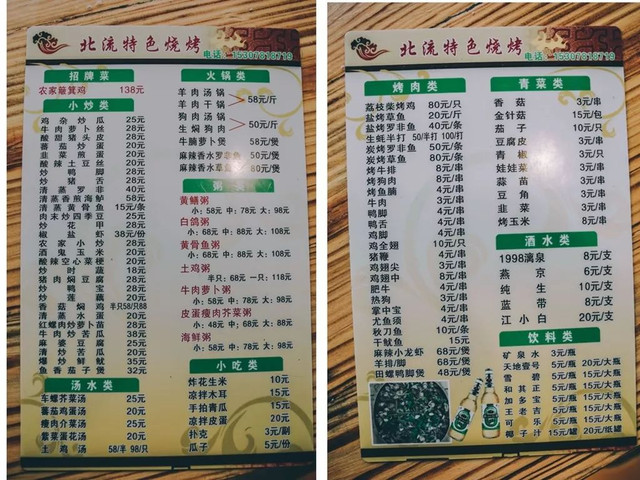 北流特色烧烤
电话
招牌菜
农家簸箕鸡 138元
小炒类
鸡杂炒瓜 25元
牛肉萝卜丝 28元
酸甜猪头皮 28元
蕃茄炒蛋 20元
韭菜煎蛋 20元
酸辣土豆丝 20元
炒鸭脚 28元
炒猪舌 28元
清蒸罗非 40元
清蒸香煎海鲈 58元
清蒸黄骨鱼 15元/条
肉末炒四季豆 25元
炒花甲 28元
椒盐虾 38元/份
农家小炒 28元
酒鬼玉米 20元
酸辣空心菜梗 20元
炒时蔬 18元
猪肉焖豆腐 28元
炒鸭宝 28元
炒莲藕 20元
香菇焖鸡 半只58/只88
清蒸水蛋 20元
红螺肉炒萝卜苗 28元
牛肉炒苦瓜 38元
麻婆豆腐 25元
清炒苦瓜 20元
爆炒鲜鱿 35元
鱼香茄子煲 32元
汤水类
车螺芥菜汤 25元
蕃茄鸡蛋汤 20元
瘦肉介菜汤 25元
紫菜蛋花汤 20元
土鸡汤 58/半 98/只
火锅类
羊肉汤锅
羊肉干锅
58元/斤
狗肉汤锅
生焖狗肉
50元/斤
牛腩萝卜煲 58元/煲
麻辣香水罗非 50元/煲
麻辣香水草鱼 60元/煲
粥类
黄鳝粥
小：58元 中：78元 大：98元
白鸽粥
小：68元 中：88元 大：108元
黄骨鱼粥
小：68元 中：88元 大：108元
土鸡粥
半只：68元 一只：118元
牛肉萝卜粥
小：58元 中：78元 大：98元
皮蛋瘦肉芥菜粥
小：48元 中：68元 大：88元
海鲜粥
小：58元 中：78元 大：98元
小吃类
炸花生米 10元
凉拌木耳 15元
手拍青瓜 15元
凉拌皮蛋 20元
扑克 3元/副
瓜子 5元/份
北流特色烧烤
电话
烤肉类
荔枝柴烤鸡 80元/只
盐烤草鱼 20元/斤
盐烤罗非鱼 40元/条
生蚝半打 50/半打 100/打
炭烤罗非鱼 50元/条
炭烤草鱼 80元/条
烤牛排 8元/串
烤狗肉 8元/串
烤鱼腩 4元/串
牛肉 4元/串
鸭脚 4元/串
鸭舌 4元/串
鸡脚 4元/串
鸡全翅 10元/只
猪鞭 4元/串
鸡翅尖 3元/串
鸡翅中 8元/串
肥牛 4元/串
热狗 3元/串
掌中宝 4元/串
尤鱼须 4元/串
秋刀鱼 10元/条
干鱿鱼 15元
麻辣小龙虾 68元/煲
羊排/脚 68元/煲
田螺鸭脚煲 48元/煲
青菜类
香菇 3元/串
金针菇 15元/包
茄子 10元/只
豆腐皮 3元/串
青椒 3元/只
娃娃菜 3元/串
蒜苗 3元/串
豆角 3元/串
韭菜 3元/串
烤玉米 8元/串
酒水类
1998漓泉 8元/支
燕京 6元/支
纯生 10元/支
蓝带 8元/支
江小白 20元/支
饮料类
矿泉水 3元/瓶
天地壹号 5元/瓶 20元/大瓶
雪碧 5元/瓶 15元/大瓶
和其正 5元/瓶 15元/大瓶
加多宝 5元/瓶 15元/大瓶
王老吉 5元/瓶 15元/大瓶
可乐 5元/瓶 15元/大瓶
椰子汁 15元/罐 20元/纸罐